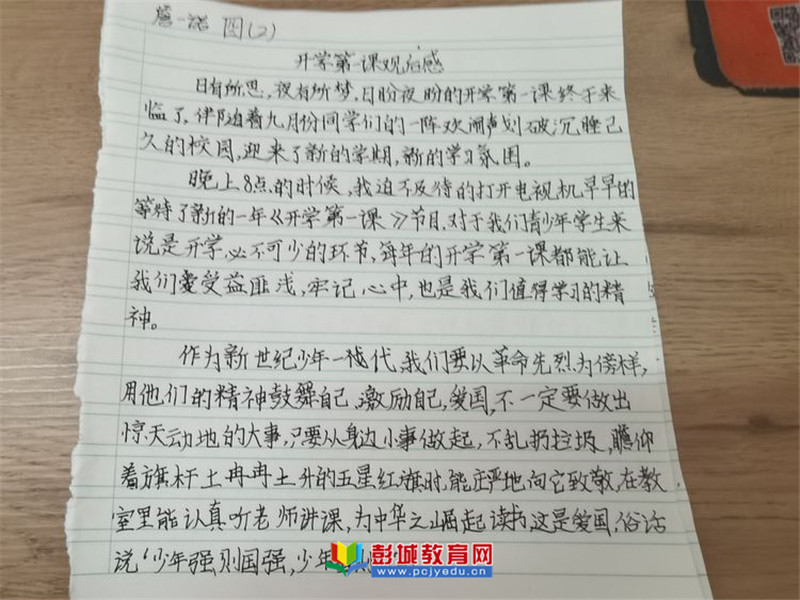 詹一诺 图(2)
开学第一课观后感
日有所思,夜有所梦,日盼夜盼的开学第一课终于来
临了,伴随着九月份同学们的一阵欢闹声划破沉睡已
久的校园,迎来了新的学期,新的学习氛围。
晚上8点的时候,我迫不及待的打开电视机早早的
等待了新的一年《开学第一课》节目,对于我们青少年学生来
说是开学,必不可少的环节,每年的开学第一课都能让
我们爱受益匪浅,牢记心中,也是我们值得学习的精
神。
作为新世纪少年一代代,我们要以革命先烈为傍样,
用他们的精神鼓舞自己,激励自己,爱国,不一定要做出
惊天动地的大事,只要从身边小事做起,不乱扔垃圾,瞻仰
着旗杆上冉冉上升的五星红旗时,能庄严地向它致敬,在教
室里能认真听老师讲课,为中华之崛起读书,这是爱国,俗话
说"少年强则国强,少年
彭城教育网
www.pcjyedu.cn